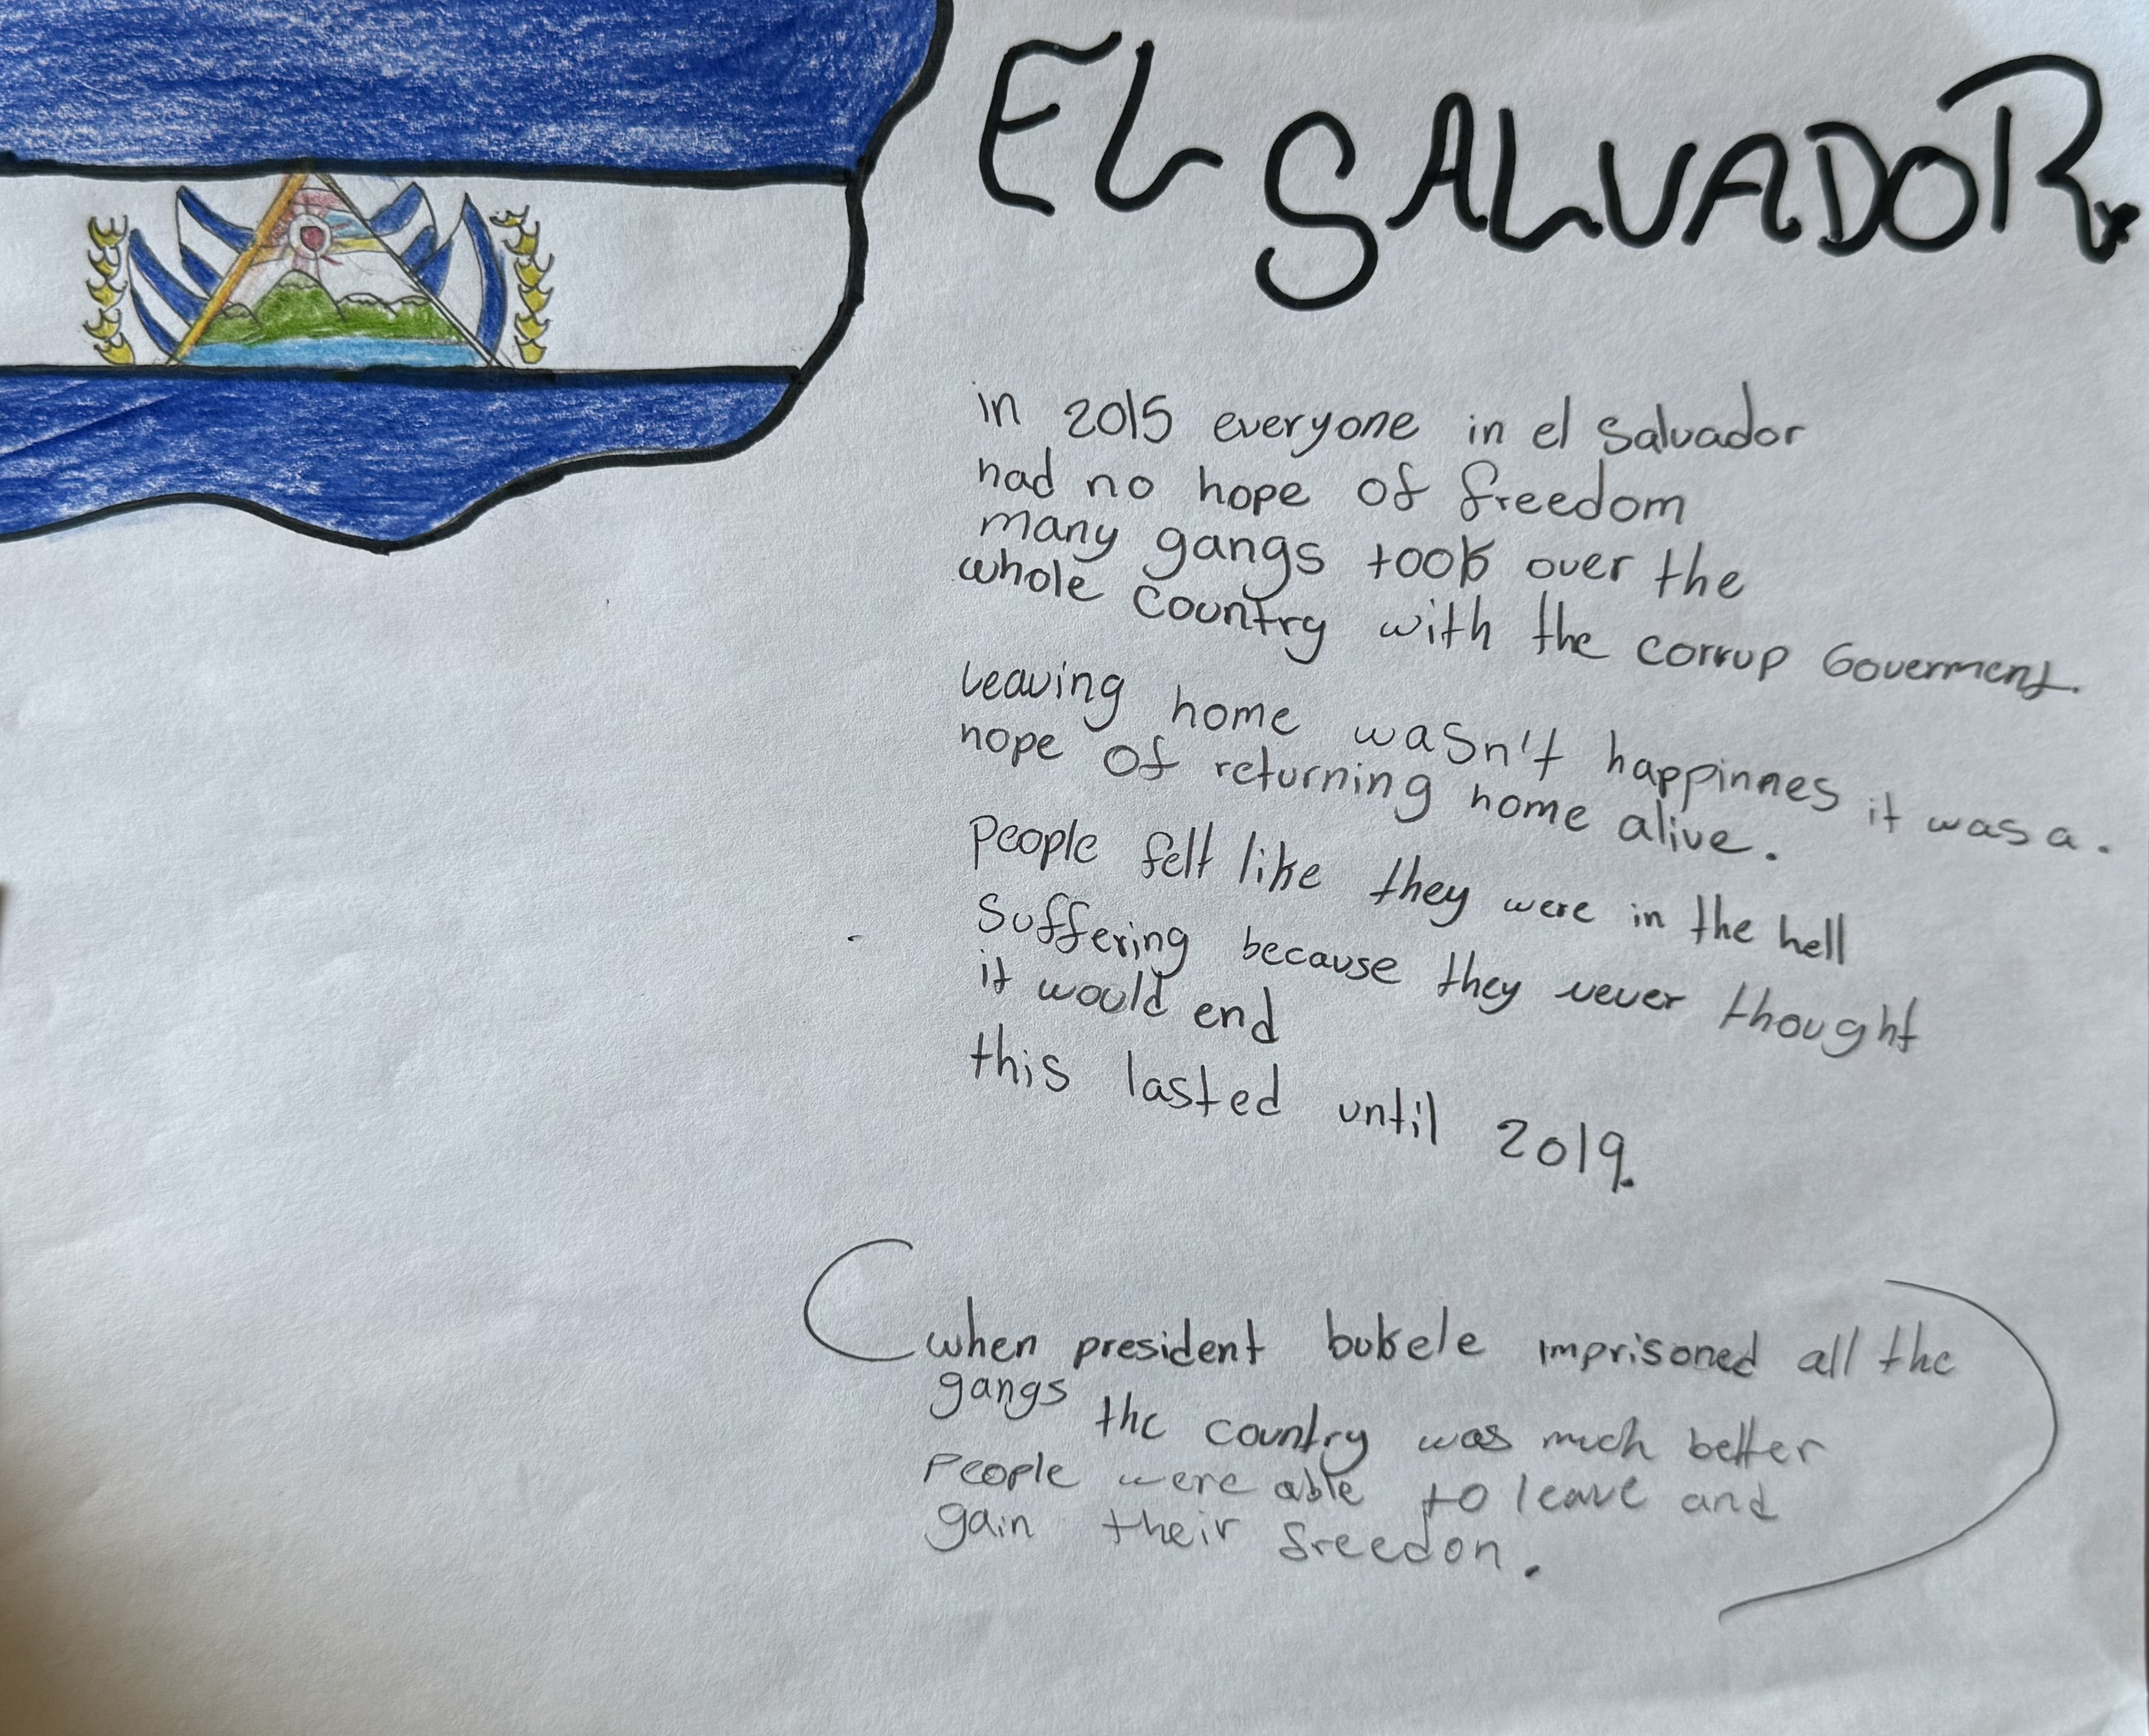 EL SALVADOR.
in 2015 everyone in el Salvador
had no hope of freedom
many gangs took over the
whole country with the corrup Goverment.
Leaving home wasn't happinnes it was a.
hope of returning home alive.
People felt like they were in the hell
Suffering because they never thought
it would end
this lasted until 2019.
when president bukele imprisoned all the
gangs the country was much better
People were able to leave and
gain their freedon.